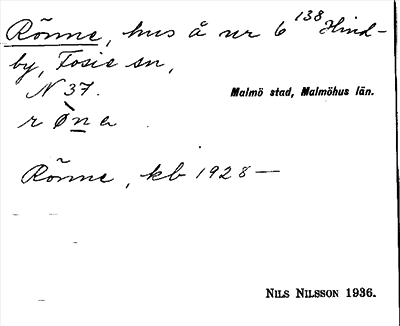 Rönne, hus å nr 6 138 Hind-
by, Fosie sn,
N 37.
Malmö stad, Malmöhus län.
r ø̀n e
Rönne, kb 1928—
NILS NILSSON 1936.